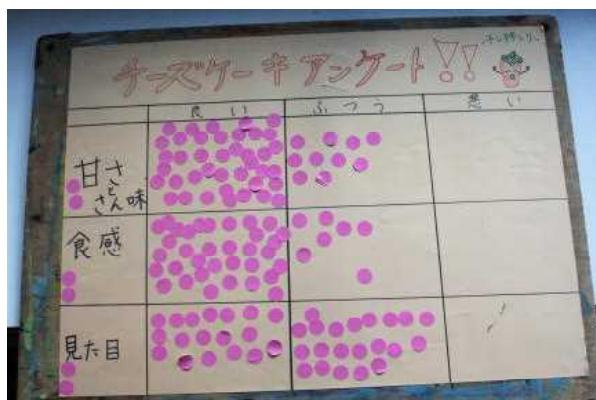 チーズケーキアンケート!!
良い ふつう 悪い
甘さ
と
さん味
食感
見た目